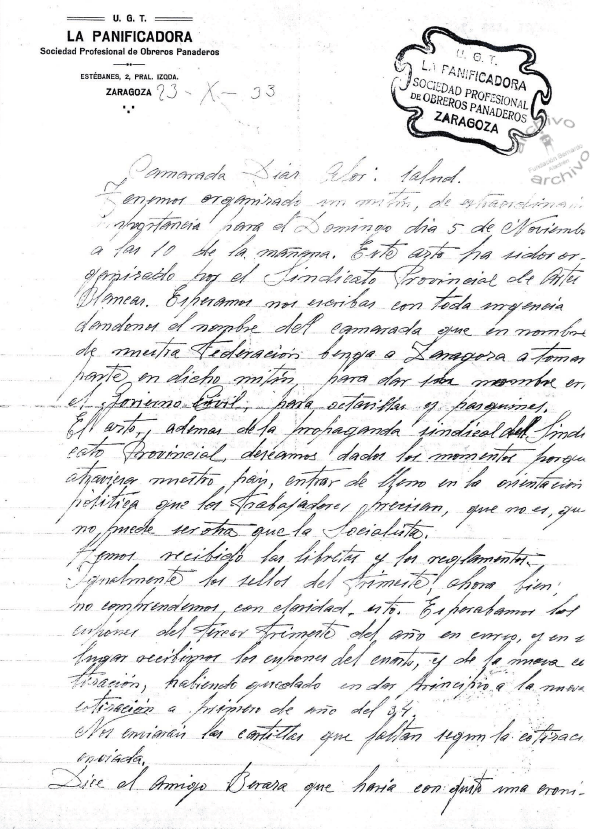 U. G. T.
LA PANIFICADORA
Sociedad Profesional de Obreros Panaderos
ESTÉBANES, 2, PRAL. IZQDA.
ZARAGOZA 23 - X - 33
U. G. T.
LA PANIFICADORA
SOCIEDAD PROFESIONAL
DE OBREROS PANADEROS
ZARAGOZA
archivo
Fundación
archivo
Camarada Diaz Alor: Salud.
Tenemos organizado un mitín, de extraordinari
importancia para el Domingo dia 5 de Noviemb
a las 10 de la mañana. Este acto ha sido or-
ganizado por el Sindicato Provincial de Artes
Blancas. Esperamos nos escribas con toda urgencia
dandonos el nombre del camarada que en nombre
de nuestra Federación benga a Zaragoza a tomar
parte en dicho mitín, para dar su nombre en
el Govierno Civil, para octavillas y pasquines.
El acto, ademas de la propaganda sindical del Sindi
cato Provincial, deseamos dados los momentos porque
atraviesa nuestro pais, entrar de lleno en la orientación
política que los trabajadores precisan, que no es, que
no puede ser otra que la Socialista.
Hemos recibido las libretas y los reglamentos.
Igualmente los sellos del trimestre, ahora bien;
no comprendemos, con claridad, esto. Esperabamos los
cupones del tercer trimestre del año en curso, y en s
lugar recibimos los cupones del cuarto, y de la nueva co
tización, habiendo quedado en dar principio a la nueva
cotización a primero de año del 34.
Nos enviarais las cartillas que faltan segun la cotizaci
enviada.
Dice el Amigo que haria con gusto una croni-